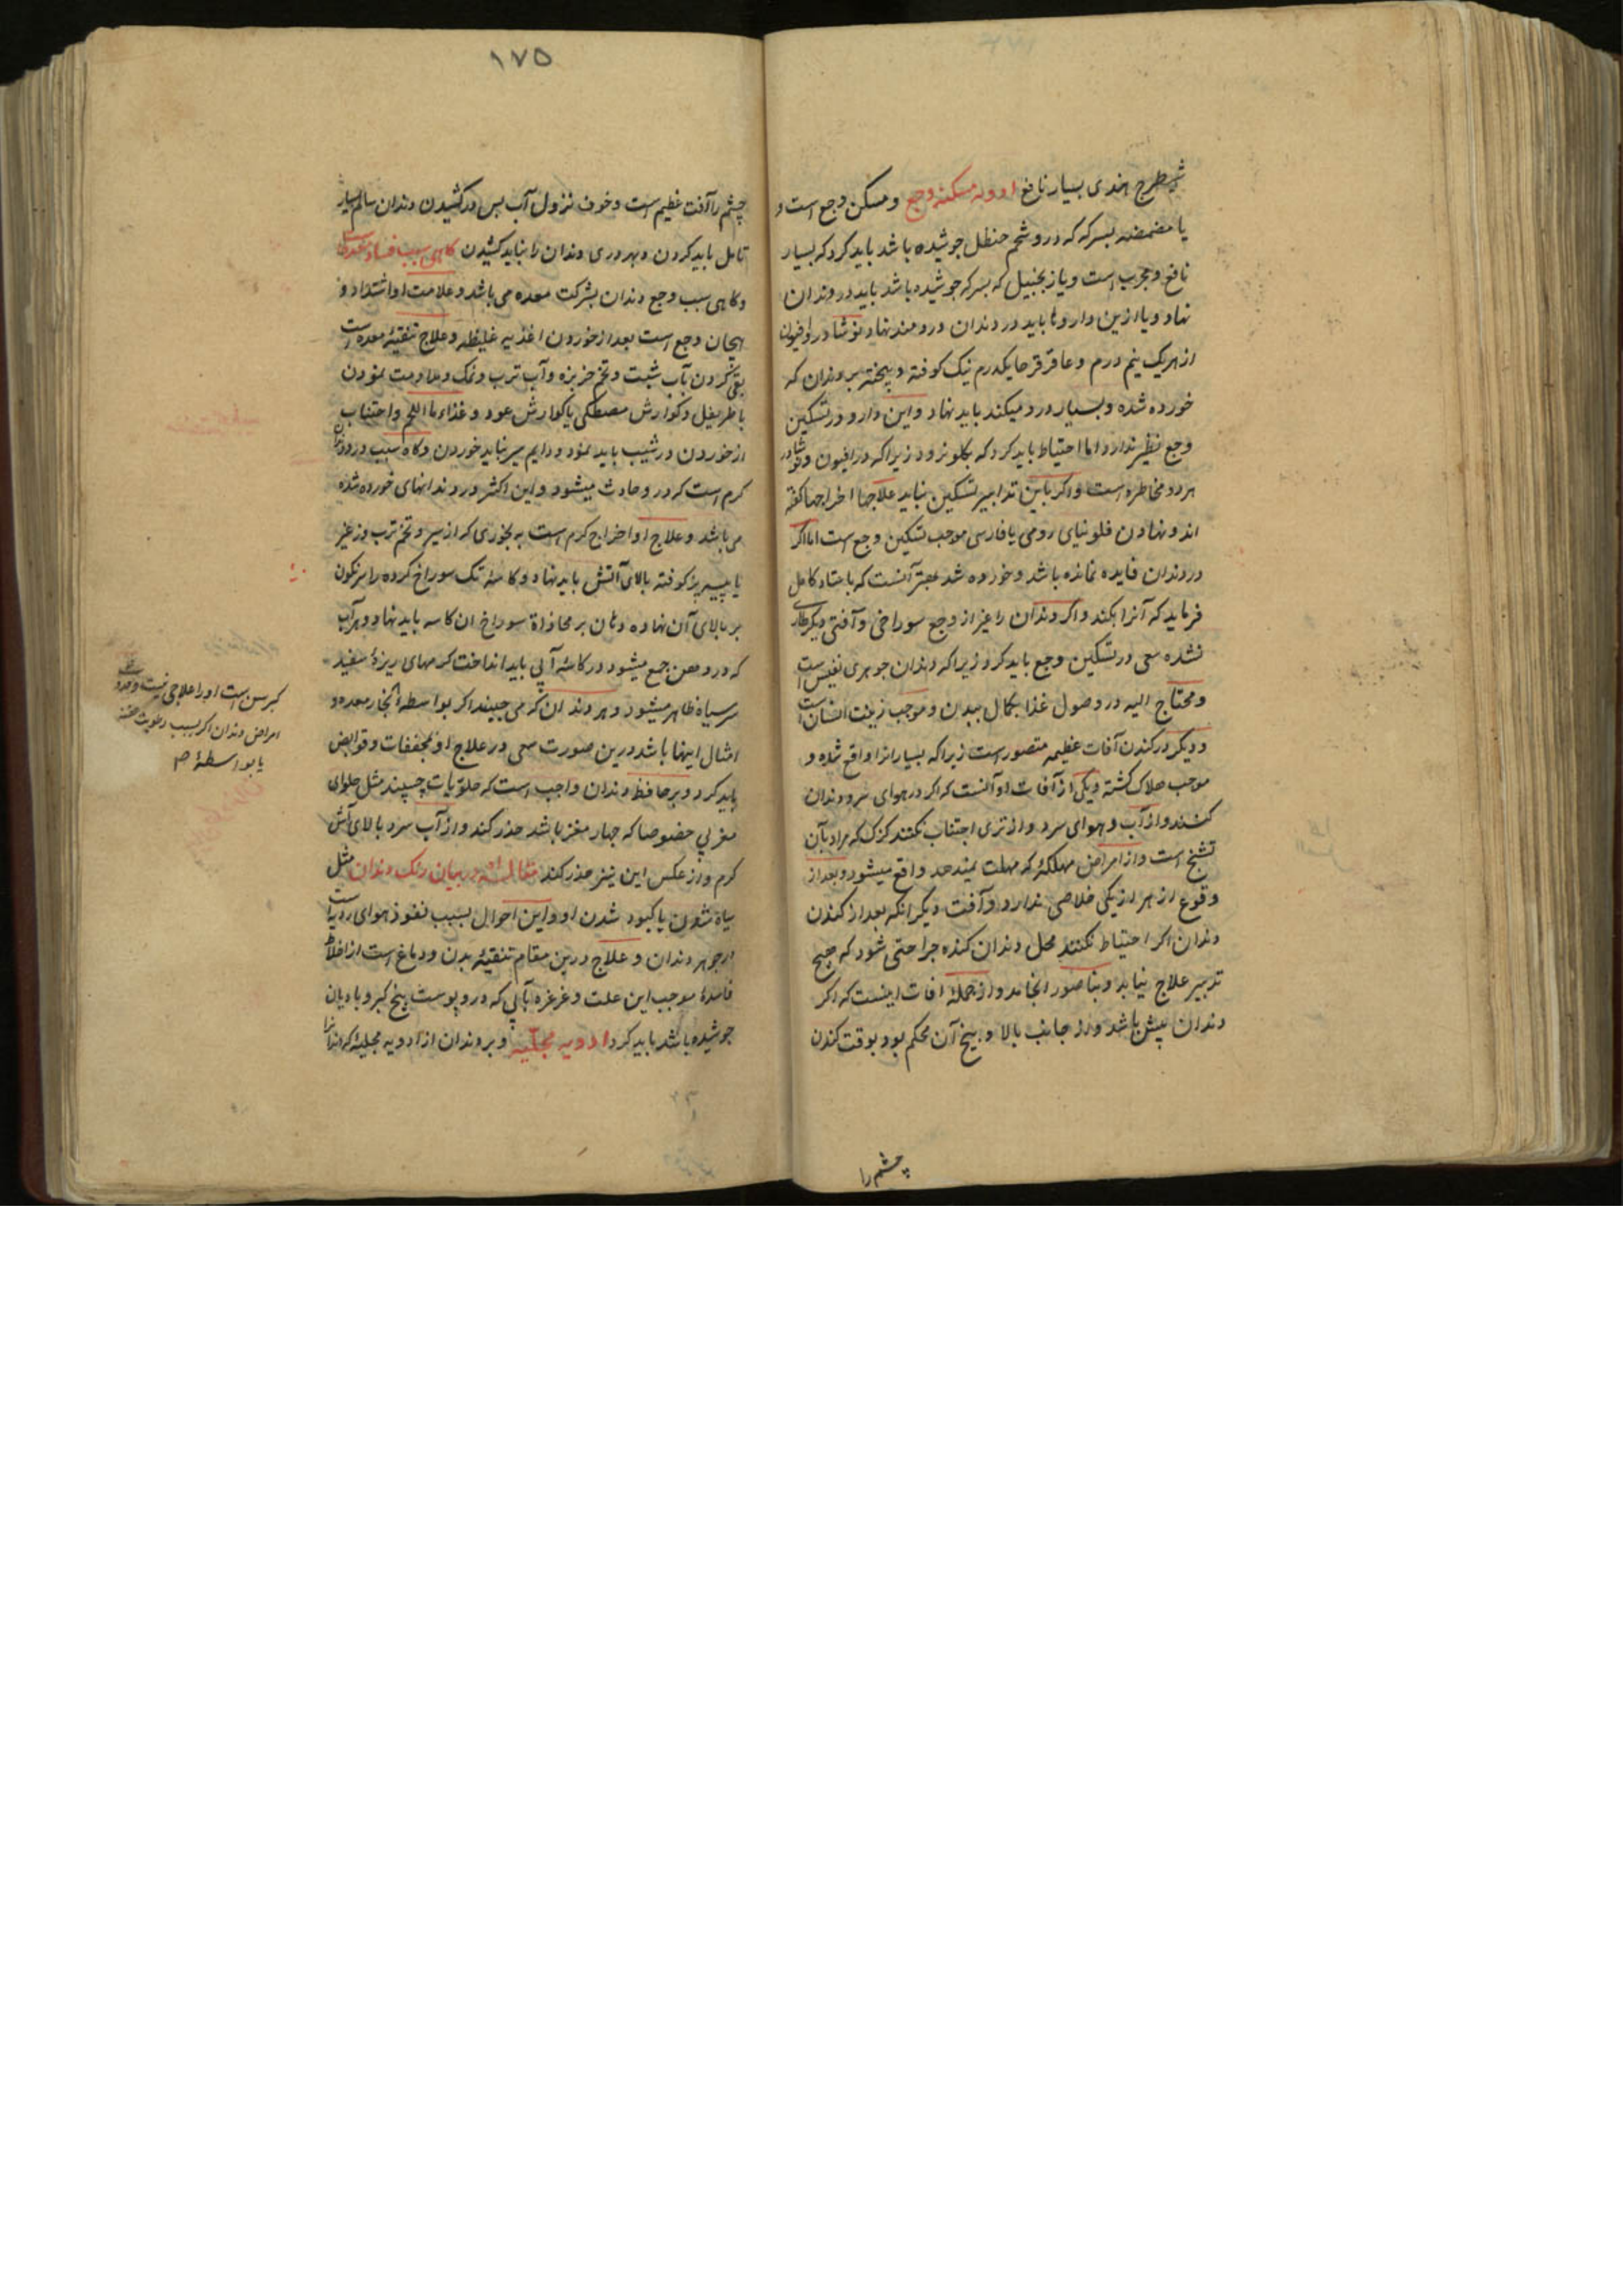 شیطرج هندی بسیار نافع ادویه مسکنه وجع و مسکن وجع است و
یا مضمضه بسرکه که درو شحم حنظل جوشیده باشد باید کرد که بسیار
نافع و مجرب است و یا زنجبیل که بسرکه جوشیده باشد باید در دندان
نهاد و یا ازین داروها باید در دندان دردمند نهاد نوشادر و افیون
از هریک نیم درم و عاقرقرحا یکدرم نیک کوفته و پیخته بر دندان که
خورده شده و بسیار درد میکند باید نهاد و این دارو در تسکین
وجع نظیر ندارد اما احتیاط باید کرد که بکلو نرود زیرا که در افیون و نوشادر
هر دو مخاطره است و اکر باین تدابیر تسکین نیابد علاجها اخراجها کفته
اند و نهادن فلونیای رومی یا فارسی موجب تسکین وجع است اما اکر
در دندان فایده نمانده باشد و خورده شد بهتر آنست که باستاد کامل
فرماید که آنرا بکند و اکر دندان را غیر از وجع سوراخی و آفتی دیکر طاری
نشده سعی در تسکین وجع باید کرد زیرا که دندان جوهری نفیس است
و محتاج الیه در وصول غذا بکمال ببدن و موجب زینت انسان است
و دیکر در کندن آفات عظیمه متصور است زیرا که بسیار انرا واقع شده و
موجب هلاک کشته و یکی از آفات او آنست که اکر در هوای سرد دندان
کنند و از آب و هوای سرد و از تری اجتناب نکنند کزک که مراد بآن
تشنج است و از امراض مهلکه که مهلت نمیدهد واقع میشود و بعد از
وقوع از هر از یکی خلاصی ندارد و آفت دیکر انکه بعد از کندن
دندان اکر احتیاط نکنند محل دندان کنده جراحتی شود که هیچ
تدبیر علاج نیابد و بناصور انجامد و از جمله افات اینست که اکر
دندان پیش باشد و از جانب بالا و بیخ آن محکم بود بوقت کندن
چشم را
۱۷۵
چشم را آفت عظیم است و خوف نزول آب پس در کشیدن دندان سالم بسیار
تامل باید کردن و بهر دردی دندان را نباید کشیدن کاهی سبب فساد معده است
و کاهی سبب وجع دندان بشرکت معده می باشد و علامت او اشتداد و
هیجان وجع است بعد از خوردن اغذیه غلیظه و علاج تنقیه معده است
بقی کردن بآب شبت و تخم خربزه و آب ترب و نمک و مداومت نمودن
باطریفل و کوارش مصطکی یا کوارش عود و غذاء ما اللحم و اجتناب
از خوردن در شیب باید نمود و دایم سیر نباید خوردن و کاه سبب درد دندان
کرم است که درو حادث میشود و این اکثر در دندانهای خورده شده
می باشد و علاج او اخراج کرم است به بخوری که از سیر و تخم ترب و زعیر
یا پیه بز کوفته بالای آتش باید نهاد و کاسه تک سوراخ کرده را سرنکون
بر بالای آن نهاده دهان بر محاذاة سوراخ ان کاسه باید نهاد و هر آب
که در دهن جمع میشود در کاسه آبی باید انداخت کرمهای ریزهٔ سفید
سر سیاه ظاهر میشود و هر دندان که می جنبد اکر بواسطه انجار معده و
امثال اینها باشد درین صورت سعی در علاج او بمجففات و قوابض
باید کرد و بر حافظ دندان واجب است که حلویات چسپنده مثل حلوای
مغزی خصوصا که چهار مغز باشد حذر کند و از آب سرد بالای آش
کرم و از عکس این نیز حذر کند مقاله در بیان رنک دندان مثل
سیاه شدن یا کبود شدن او و این احوال بسبب نفوذ هوای ردیه است
در جوهر دندان و علاج درین مقام تنقیهٔ بدن و دماغ است از اخلاط
فاسدهٔ موجب این علت و غرغره بآبی که درو پوست بیخ کبر و بادیان
جوشیده باشد باید کرد ادویه مجلیه و بر دندان از ادویه مجلیه که دندانرا
کبر سن است اورا علاجی نیست و
امراض دندان اکر بسبب رطوبت
یا بواسطهٔ